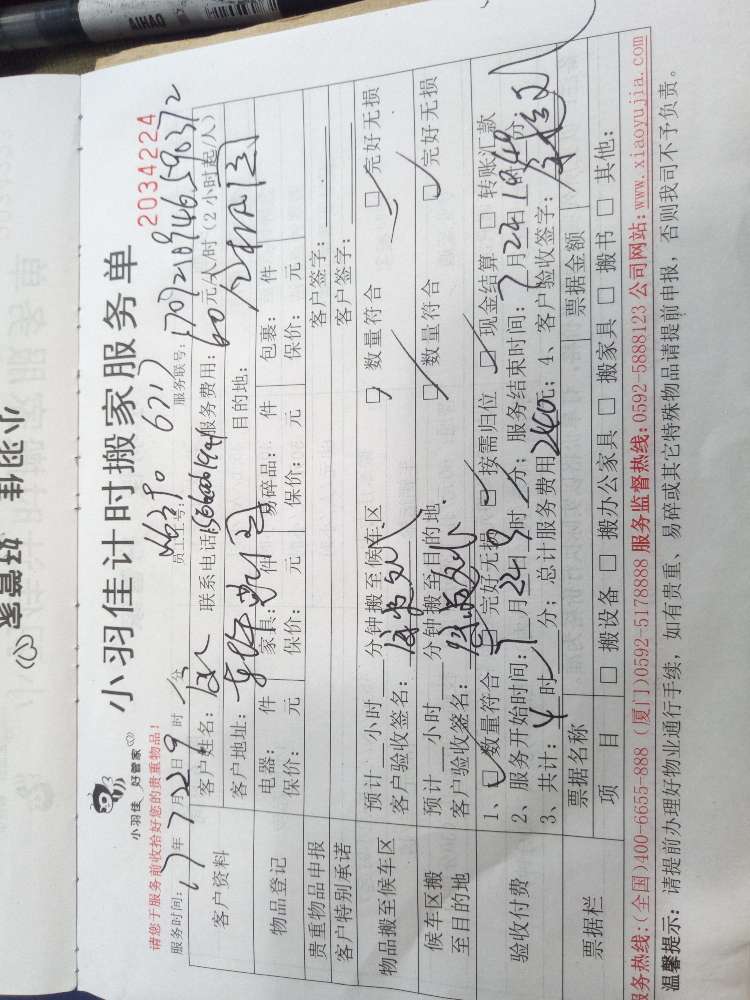 AIHAO
小羽佳 好管家
小羽佳 好管家
小羽佳计时搬家服务单
2034224
请您于服务前收拾好您的贵重物品!
服务时间: 17年7月22日9时 分
员工工号: 6717
服务联号:
客户资料
客户姓名:
联系电话:
服务费用: 60元/人/时(2小时起/人)
客户地址:
目的地:
物品登记
电器: 件 家具: 件 易碎品: 件 包裹: 件
保价: 元 保价: 元 保价: 元 保价: 元
贵重物品申报 客户签字:
客户特别承诺 客户签字:
物品搬至候车区
预计 小时 分钟搬至候车区 □ 数量符合 □ 完好无损
客户验收签名:
候车区搬至目的地
预计 小时 分钟搬至目的地 □ 数量符合 □ 完好无损
客户验收签名:
验收付费
1、□ 数量符合 □ 完好无损 □ 按需归位 □ 现金结算 □ 转账汇款
2、服务开始时间: 7月22日9时 分; 服务结束时间: 7月22日 时 分
3、共计: 4时 分; 总计服务费用240元; 4、客户验收签字:
票据栏
票据名称 票据金额
项目 □ 搬设备 □ 搬办公家具 □ 搬家具 □ 搬书 □ 其他:
服务热线:(全国)400-6655-888 (厦门)0592-5178888 服务监督热线:0592-5888123 公司网站:www.xiaoyujia.com
温馨提示: 请提前办理好物业通行手续, 如有贵重、易碎或其它特殊物品请提前申报, 否则我司不予负责。